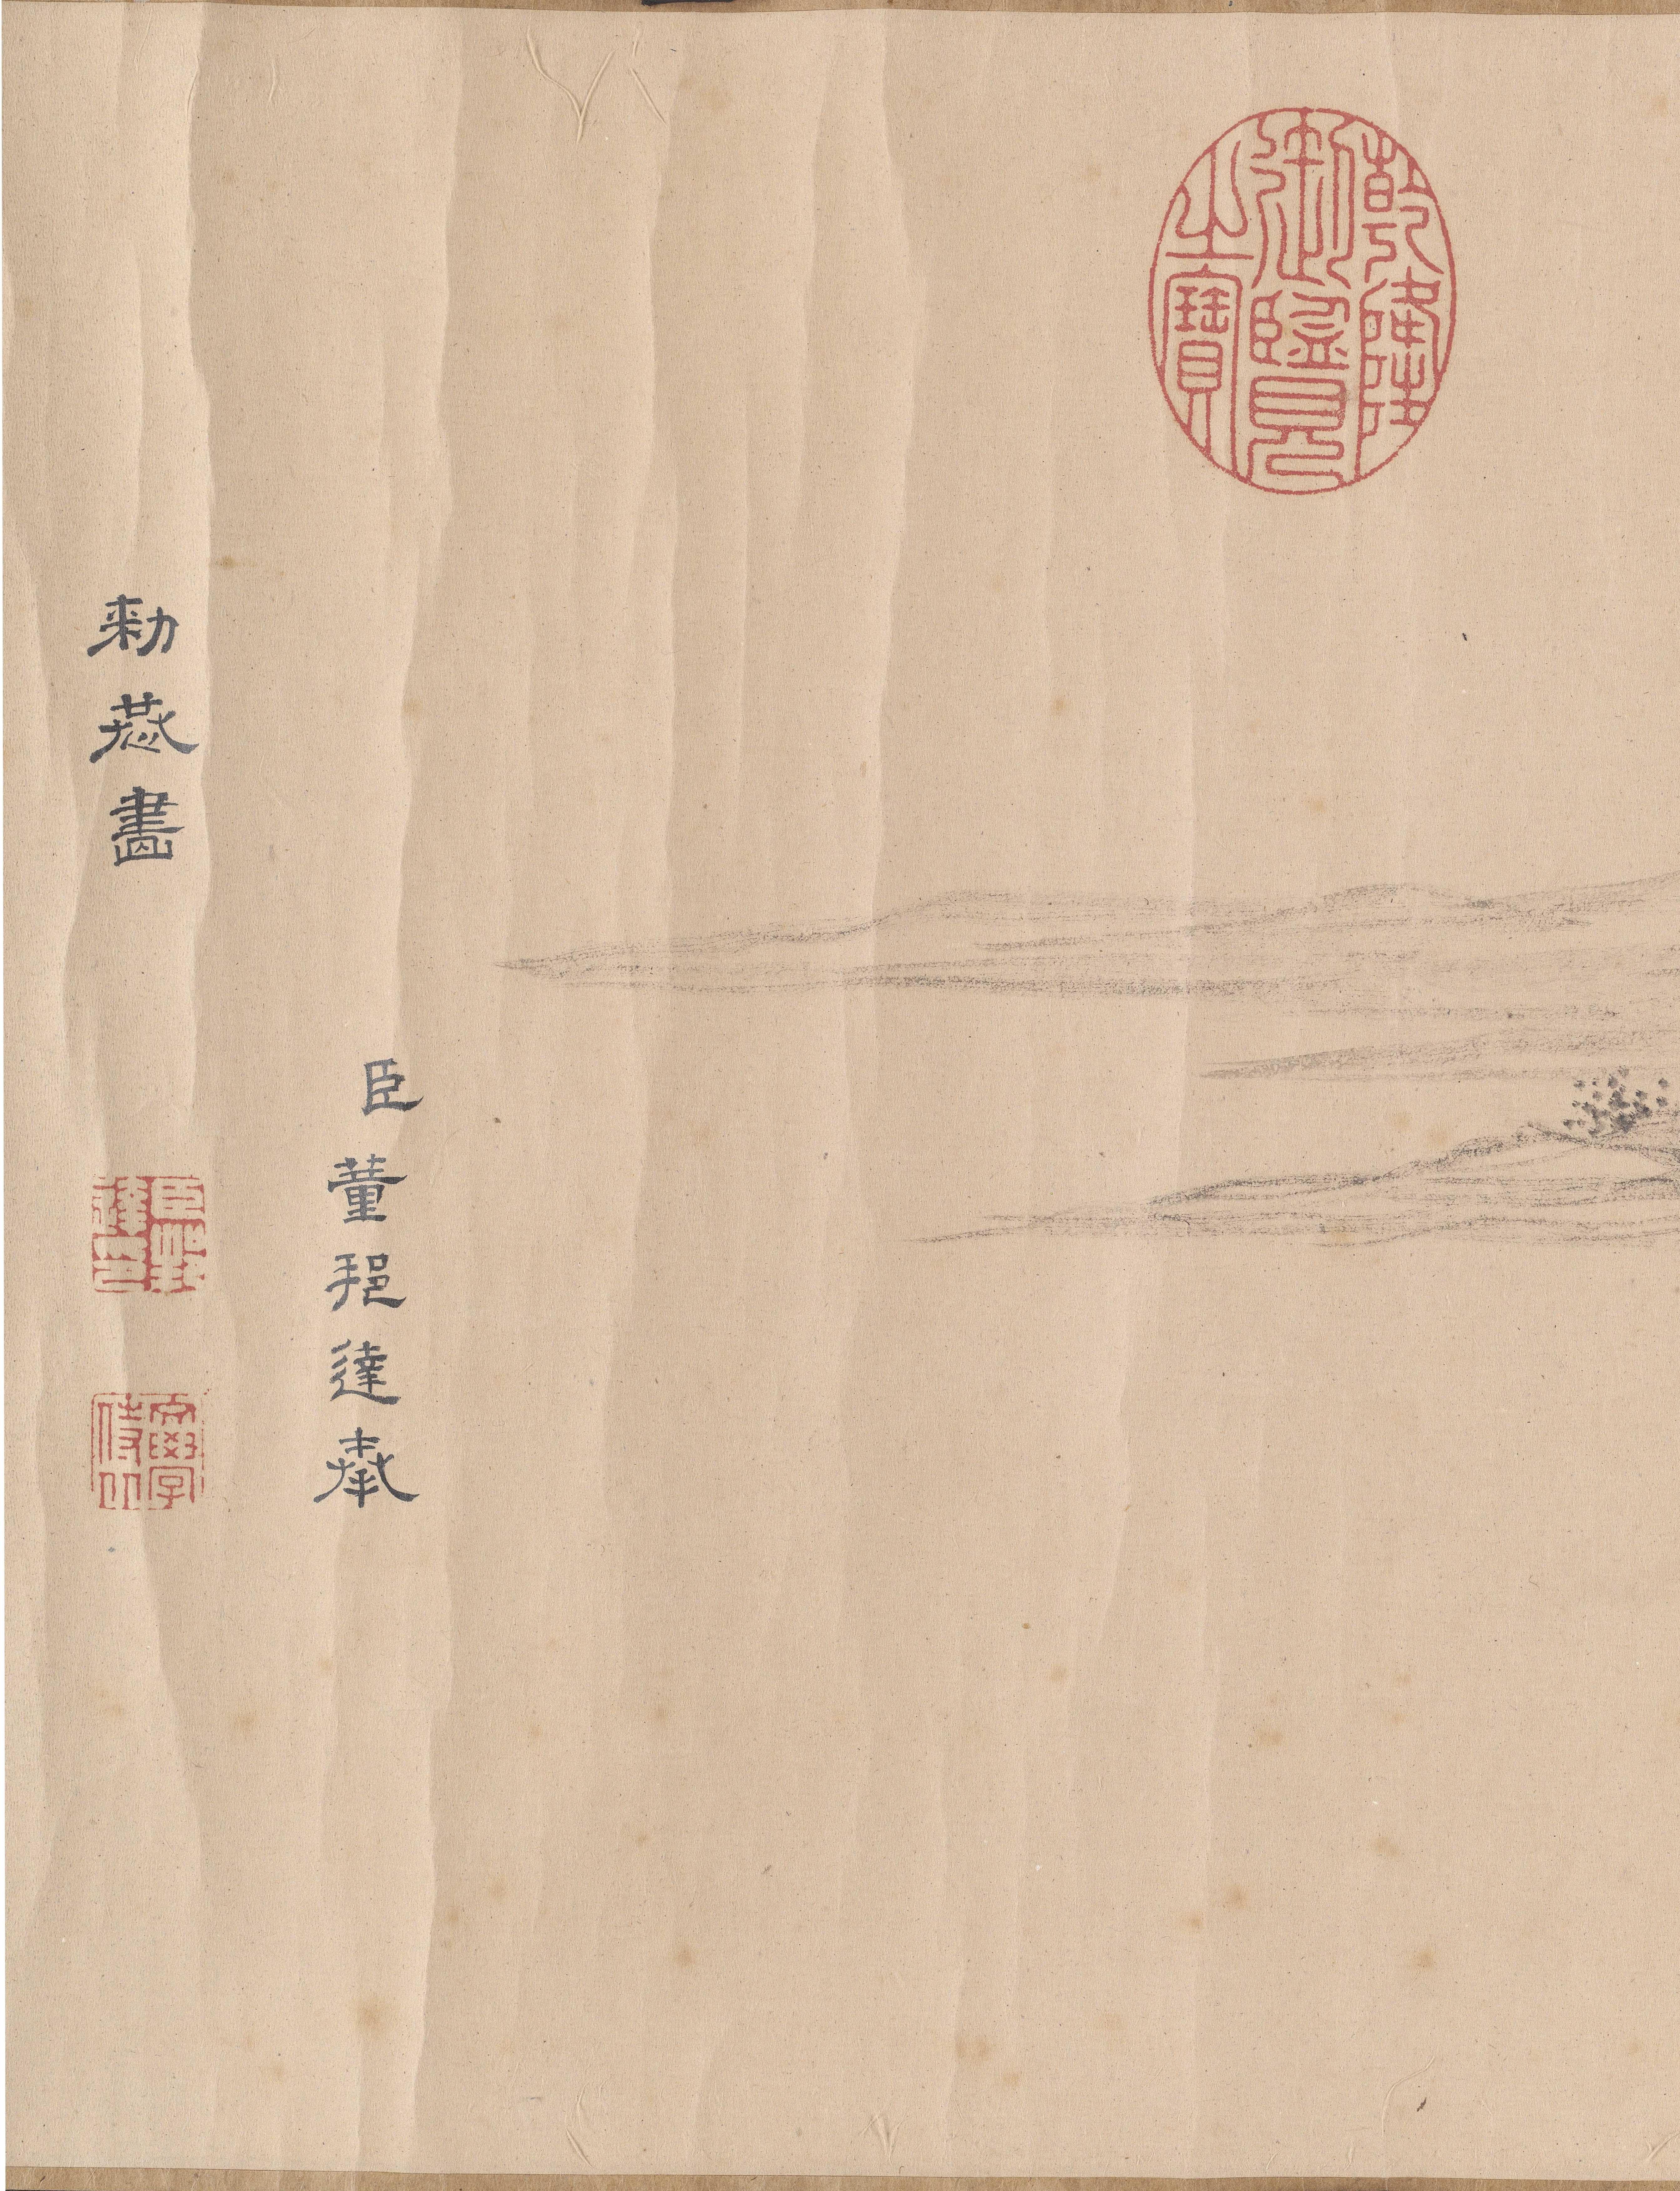 乾隆
御覽
之寶
臣董邦達奉
勅恭畫
臣邦
達印
文學
侍从